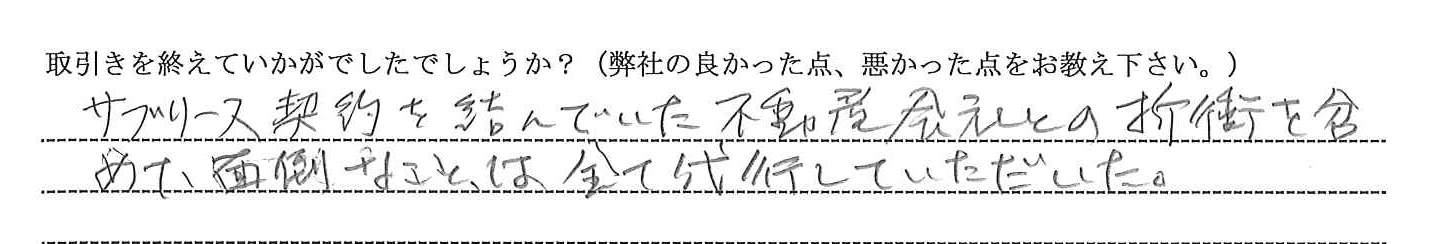 取引きを終えていかがでしたでしょうか?（弊社の良かった点、悪かった点をお教え下さい。）
サブリース契約を結んでいた不動産会社との折衝を含
めて、面倒なことは全て代行していただいた。